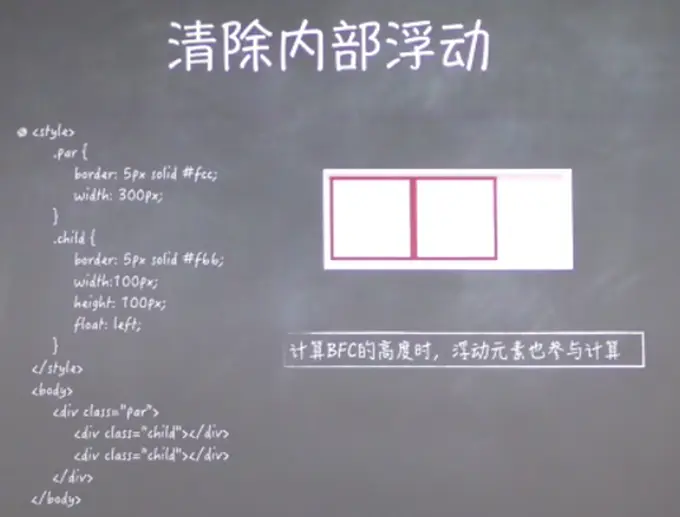 清除内部浮动
<style>
.par {
border: 5px solid #fcc;
width: 300px;
}
.child {
border: 5px solid #f66;
width:100px;
height: 100px;
float: left;
}
</style>
<body>
<div class="par">
<div class="child"></div>
<div class="child"></div>
</div>
</body>
计算BFC的高度时，浮动元素也参与计算